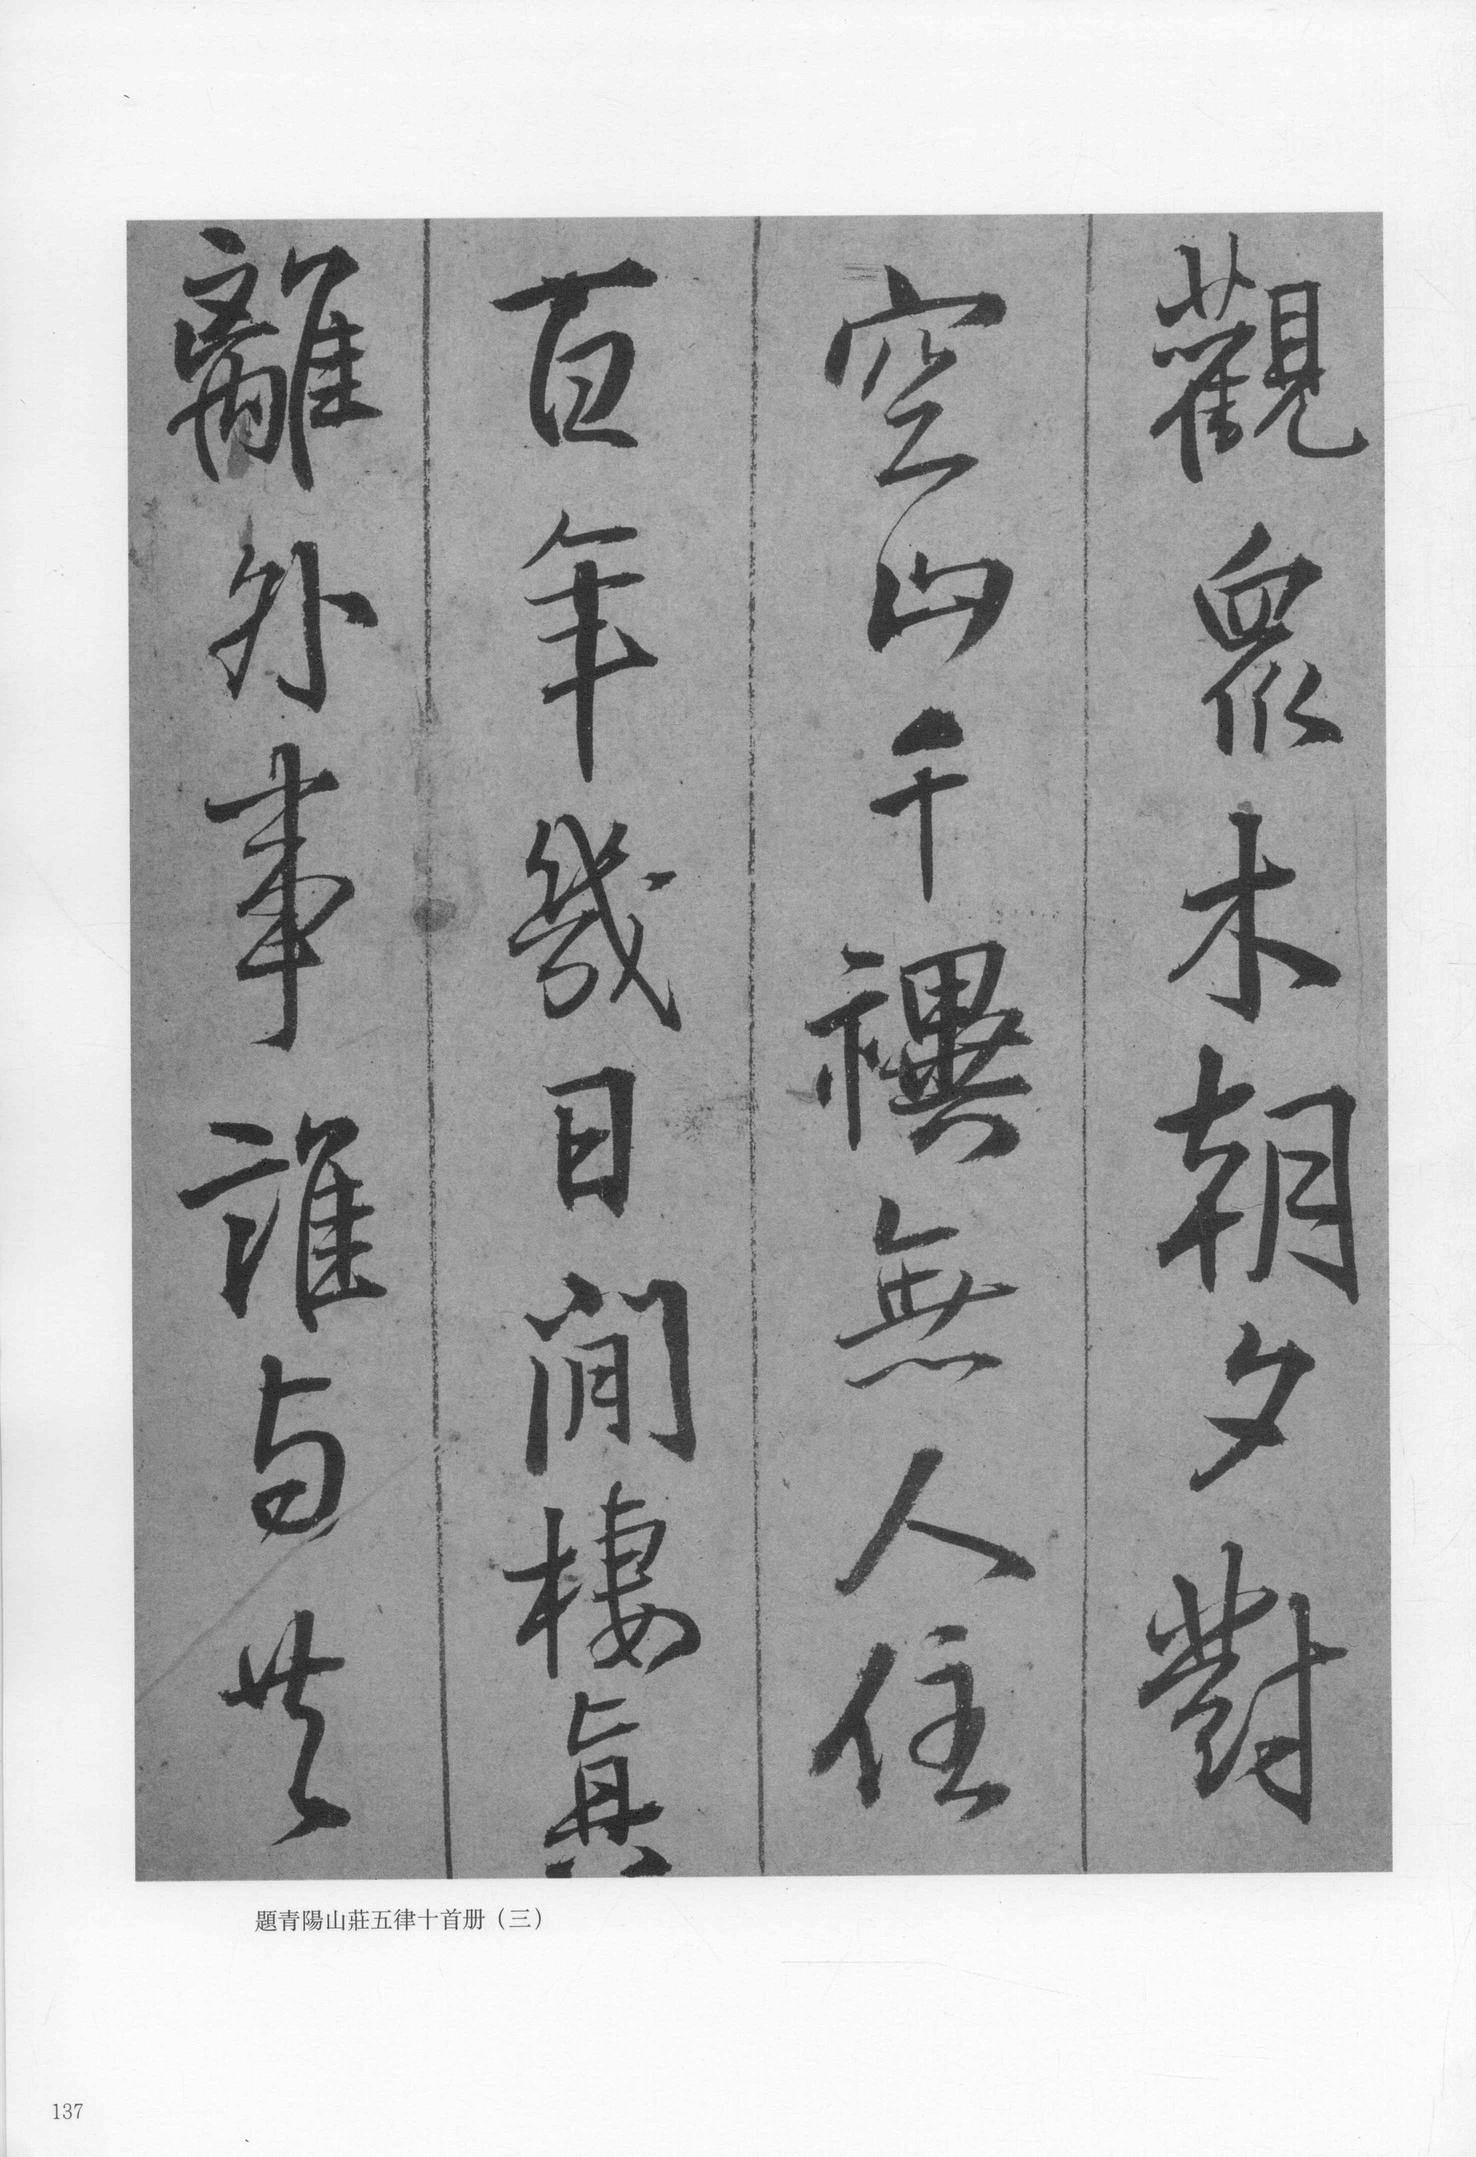 觀眾木朝夕對
空山千禩無人住
百年幾日閒棲真
離外事誰与共
題青陽山莊五律十首册（三）
137